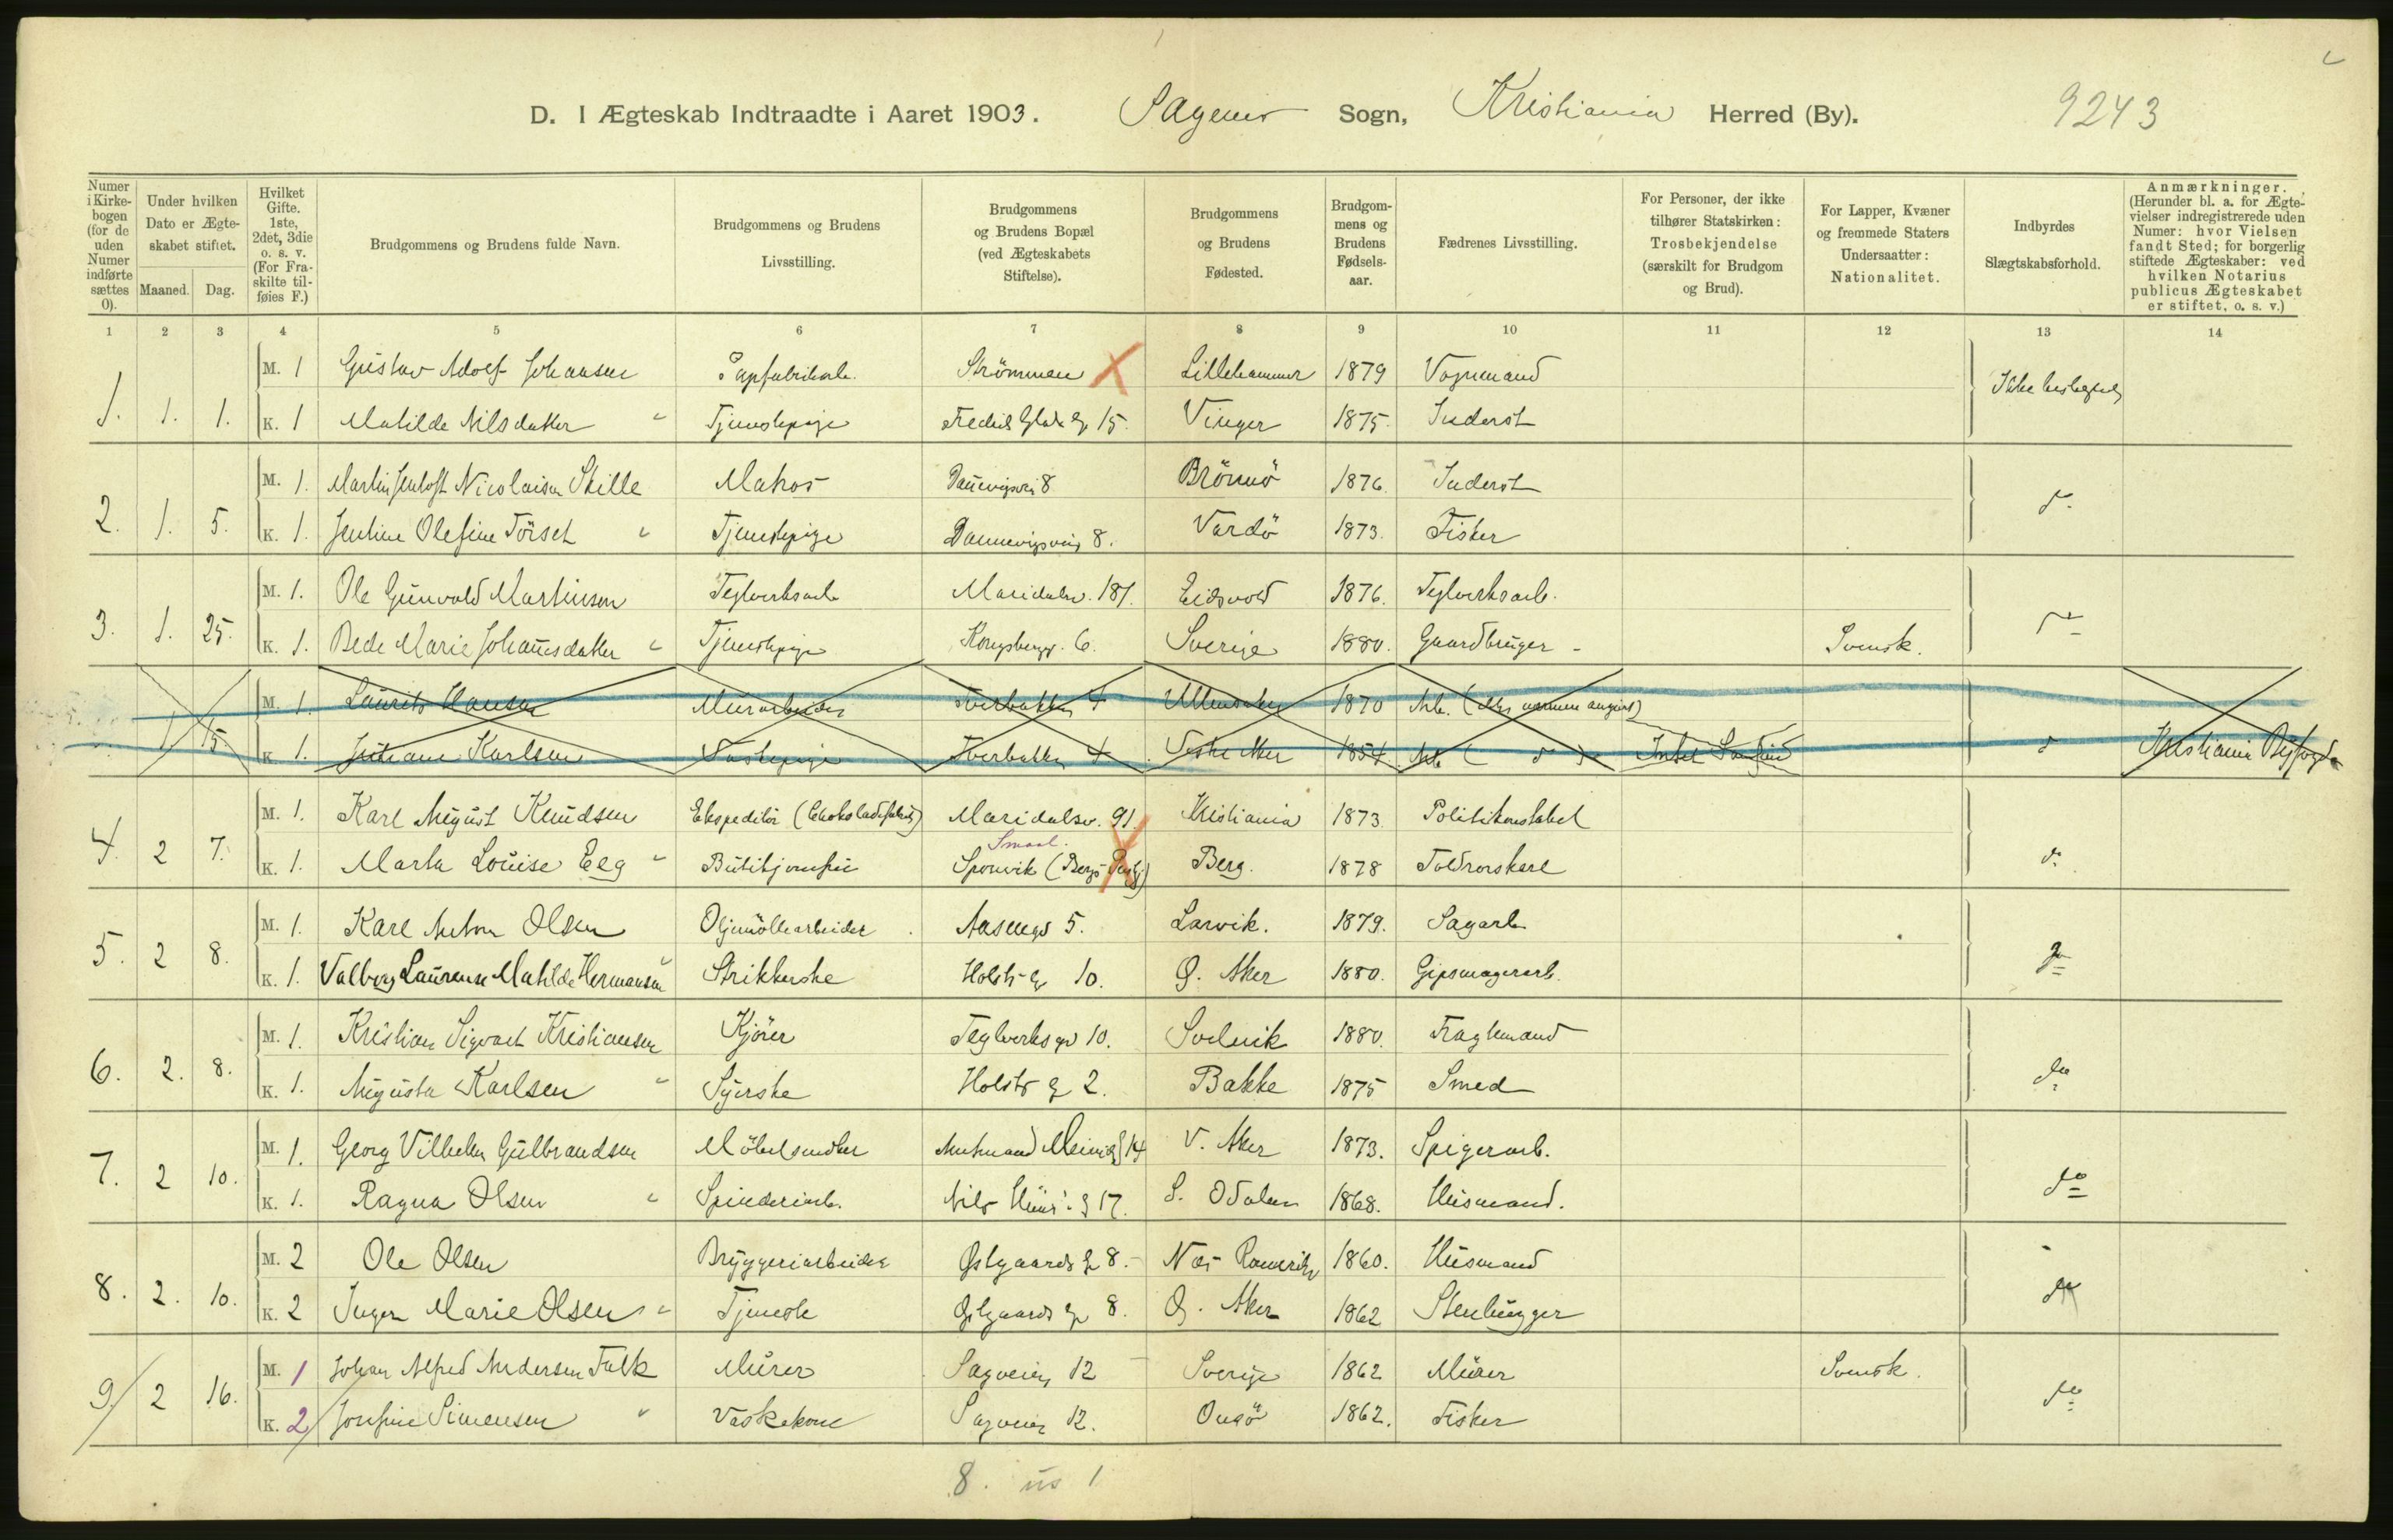 D. I Ægteskab Indtraadte i Aaret 1903. Sagene Sogn, Kristiania Herred (By). 9243
Numer i Kirkebogen (for de uden Numer indførte sættes 0).
Under hvilken Dato er Ægteskabet stiftet.
Maaned. Dag.
Hvilket Gifte. 1ste, 2det, 3die o. s. v. (For Fraskilte tilføies F.)
Brudgommens og Brudens fulde Navn.
Brudgommens og Brudens Livsstilling.
Brudgommens og Brudens Bopæl (ved Ægteskabets Stiftelse).
Brudgommens og Brudens Fødested.
Brudgommens og Brudens Fødselsaar.
Fædrenes Livsstilling.
For Personer, der ikke tilhører Statskirken: Trosbekjendelse (særskilt for Brudgom og Brud).
For Lapper, Kvæner og fremmede Staters Undersaatter: Nationalitet.
Indbyrdes Slægtskabsforhold.
Anmærkninger. (Herunder bl. a. for Ægtevielser indregistrerede uden Numer: hvor Vielsen fandt Sted; for borgerlig stiftede Ægteskaber: ved hvilken Notarius publicus Ægteskabet er stiftet, o. s. v.)
1 2 3 4 5 6 7 8 9 10 11 12 13 14
1. 1. 1. M. 1 Gustav Adolf Johansen Papfabrikarb. Strömmen Lillehammer 1879 Vognmand Ikke beslegtet
K. 1 Matilde Nilsdatter " Tjenestepige Fredrik Glads g 15. Vinger 1875. Inderst
2. 1. 5. M. 1. Martin Nicolaisen Skille Matros Dannevigsvei 8 Brönnö 1876. Inderst d.
K. 1. Jentine Olefine Törset " Tjenestepige Dannevigsvei 8. Vardö 1873. Fisker
3. 1. 25. M. 1. Ole Gunvald Martinsen Teglverksarb Maridalsv. 181. Eidsvold 1876. Teglverksarb.
K. 1. Bede Marie Johannesdatter " Tjenestepige Kongsbergg. 6. Sverige 1880. Gaardbruger - Svensk.
1 15 M. 1. Laurits Hansen Murarbeider Tverbakken 4 Ullensaker 1870 Arb.
K. 1. Juliane Karlsen Tverbakken 4 Vestre Aker 1854. Arb. ( d ) Intet Samfund d Kristiania Byfogd
4. 2 7. M. 1. Karl August Knudsen Ekspeditör (Chokoladefabrik) Maridalsv. 91. Kristiania 1873. Politikonstabel d.
Smaal.
K. 1. Marta Louise Eeg " Butikjomfru Sponvik (Bergs Pstgj) Berg. 1878 Toldrorskarl
5. 2 8. M. 1. Karl Anton Olsen Oljemöllearbeider Aasengd 5. Larvik. 1879. Sagarb
K. 1. Valborg Laurense Matilde Hermansen Strikkerske Holsts g 10. Ø. Aker 1880. Gipsmagerarb.
6. 2. 8. M. 1. Kristian Sigvart Kristiansen Kjörer Teglverksgd 10. Svelvik 1880. Fragtemand do
K. 1. Augusta Karlsen " Syerske Holsts g 2. Bakke 1875 Smed
7. 2 10. M. 1. Georg Vilhelm Gulbrandsen Möbelsnedker Amtmand Meinichs g 14 V. Aker 1873. Spigerarb. do
K. 1. Ragna Olsen " Spinderiarb. Nils Huus' g 17. S. Odalen 1868. Husmand.
8. 2. 10. M. 2 Ole Olsen Bryggeriarbeider Østgaards g 8. Nes Romerike 1860. Husmand do
K. 2 Inger Marie Olsen " Tjeneste Østgaards g 8. Ø. Aker 1862 Stenhugger
9. 2 16. M. 1 Johan Alfred Andersen Falk Murer Sagveien 12 Sverige 1862 Murer Svensk. do
K. 2 Josefine Simensen " Vaskekone Sagveien 12. Onsö 1862. Fisker
8. us 1